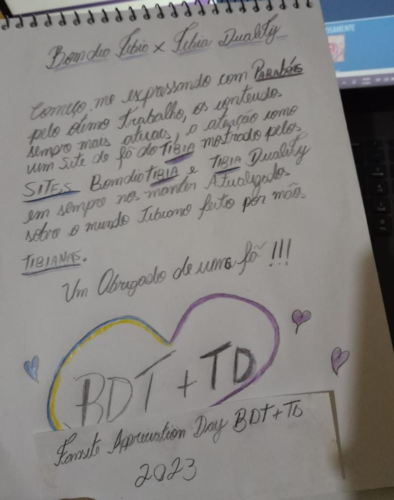 Bomdia Tibia x Tibia Duality
Começo me expressando com PARABÉNS
pelo ótimo trabalho, os conteudos
sempre mais atuais, a atenção como
um Site de fã do TIBIA mostrado pelos
SITES BomdiaTIBIA e TIBIA Duality
em sempre nos manter Atualizados
sobre o mundo Tibiano feito por mãos
TIBIANAS.
Um Obrigado de uma fã!!!
BDT + TD
Fansite Appreciation Day BDT+TD
2023